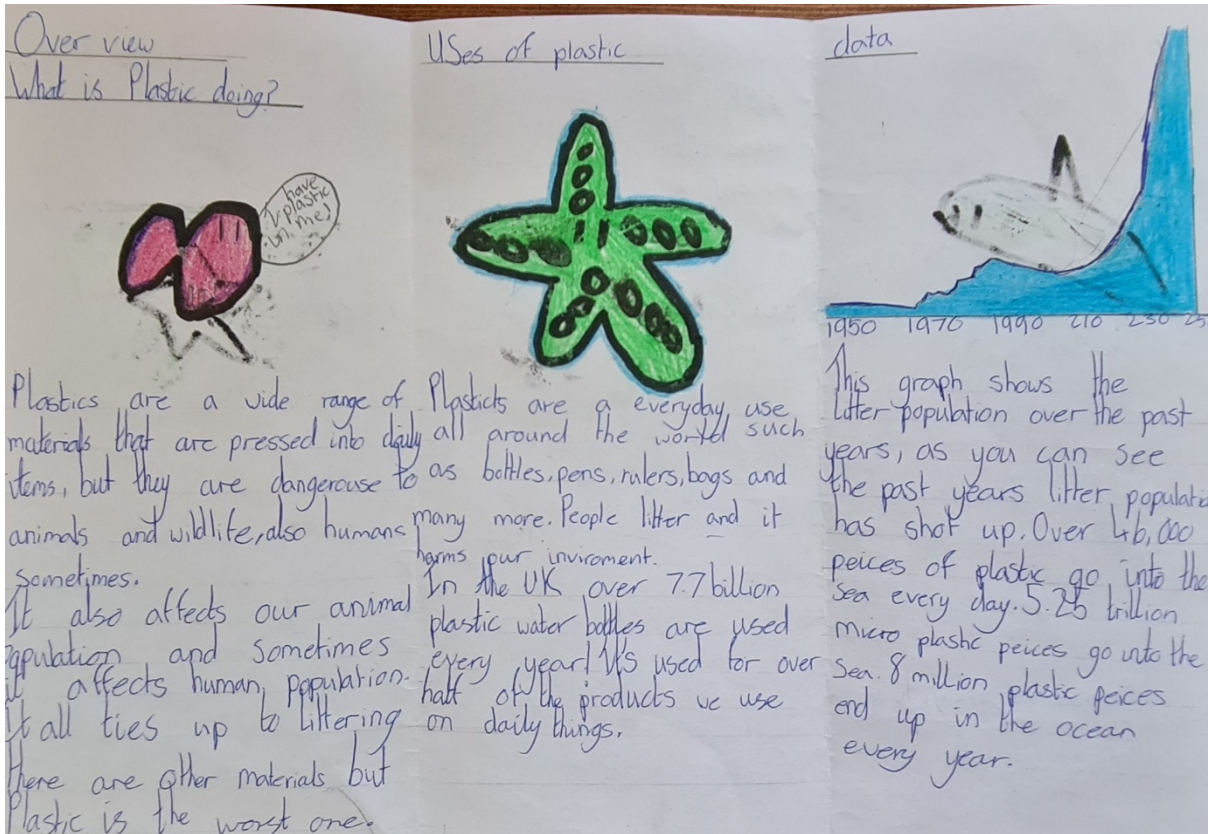 Over view
What is Plastic doing?
I have
plastic
in me!
Plastics are a wide range of
materials that are pressed into daily
items, but they are dangerouse to
animals and wildlife, also humans
sometimes.
It also affects our animal
population and sometimes
it affects human population.
it all ties up to littering
there are other materials but
Plastic is the worst one.
Uses of plastic
Plasticts are a everyday use
all around the world such
as bottles, pens, rulers, bags and
many more. People litter and it
harms our inviroment.
In the UK over 7.7 billion
plastic water bottles are used
every year! It's used for over
half of the products we use
on daily things.
data
1950 1970 1990 210 230 25
This graph shows the
litter population over the past
years, as you can see
the past years litter populatio
has shot up. Over 46,000
peices of plastic go into the
sea every day. 5.25 trillion
micro plastic peices go into the
sea. 8 million plastic peices
end up in the ocean
every year.